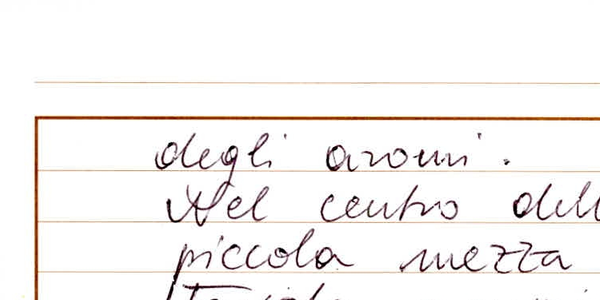 degli aromi.
Nel centro dell
piccola mezza